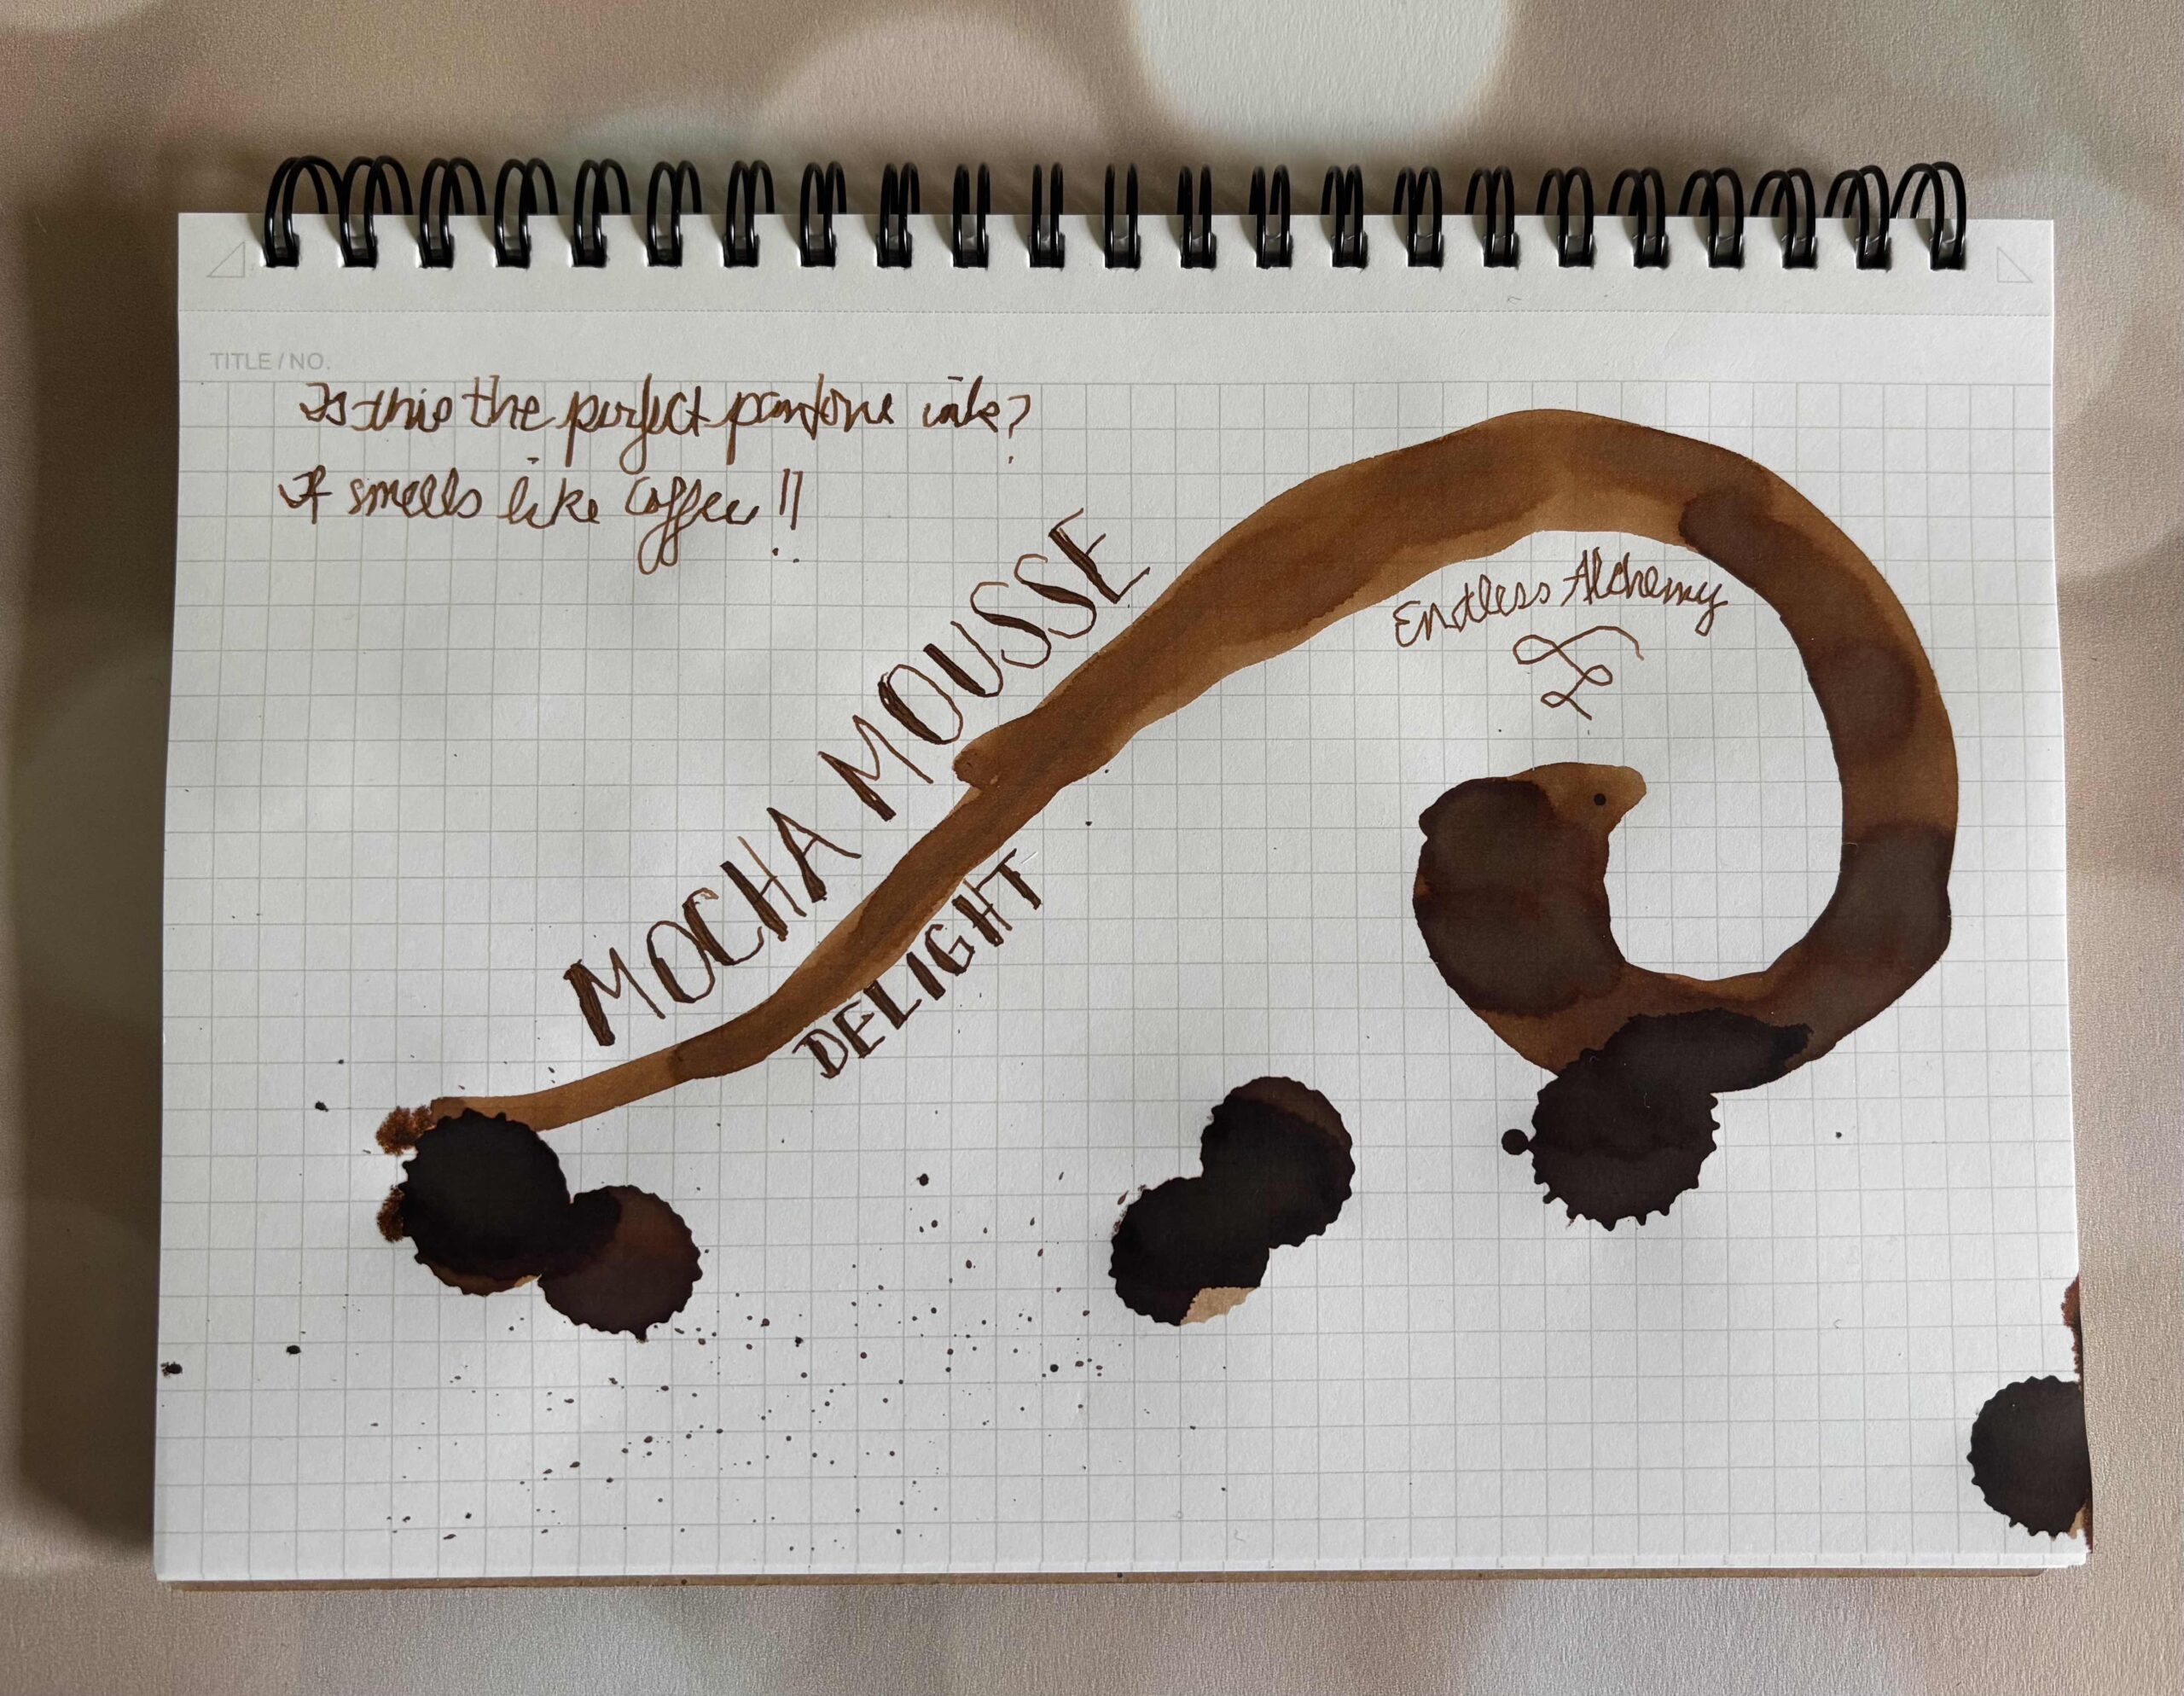 TITLE / NO.
Is this the perfect pantone ink?
It smells like Coffee!!
MOCHA MOUSSE
DELIGHT
Endless Alchemy